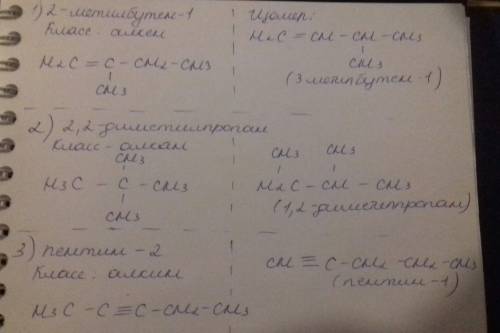 1) 2-метилбутен-1
Класс: алкен
H₂C = C - CH₂ - CH₃
CH₃
Изомер:
H₂C = CH - CH - CH₃
CH₃
(3метилбутен-1)
2) 2,2-диметилпропан
Класс - алкан
CH₃
H₃C - C - CH₃
CH₃
CH₃ CH₃
H₂C - CH - CH₃
(1,2-диметилпропан)
3) пентин-2
Класс: алкин
H₃C - C ≡ C - CH₂ - CH₃
CH ≡ C - CH₂ - CH₂ - CH₃
(пентин-1)